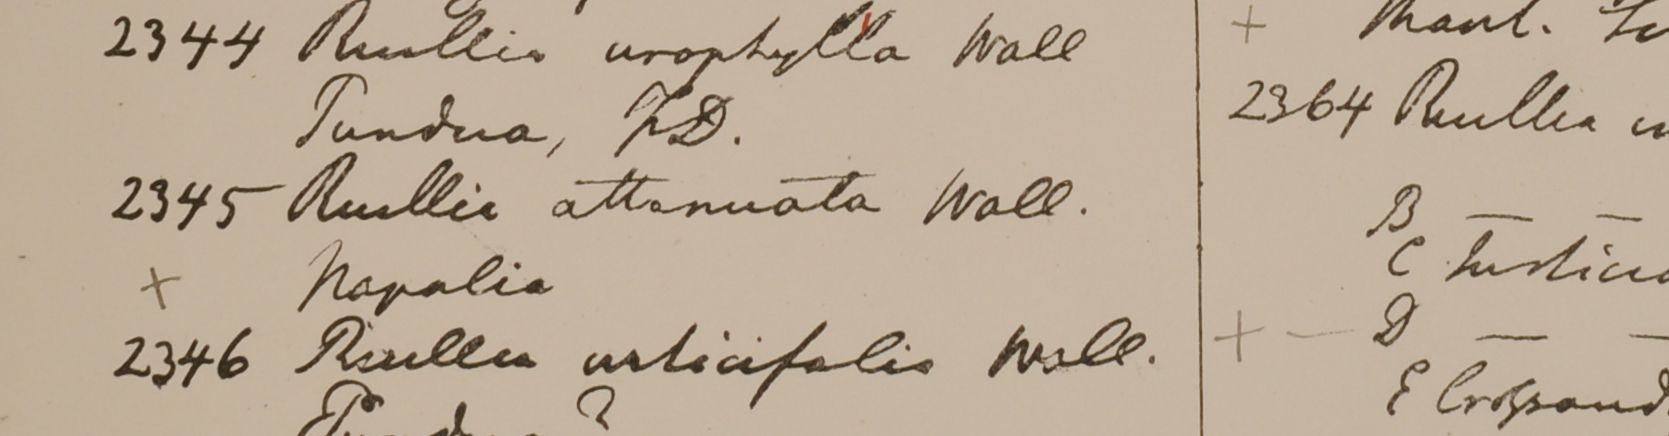 2344 Ruellia urophylla Wall
Pundua, F.D.
2345 Ruellia attenuata Wall.
+ Napalia
2346 Ruellia urticifolia Wall.
Pundua ?
+
2364 Ruellia
B — —
C Justicia
+ — D — —
E Crossand